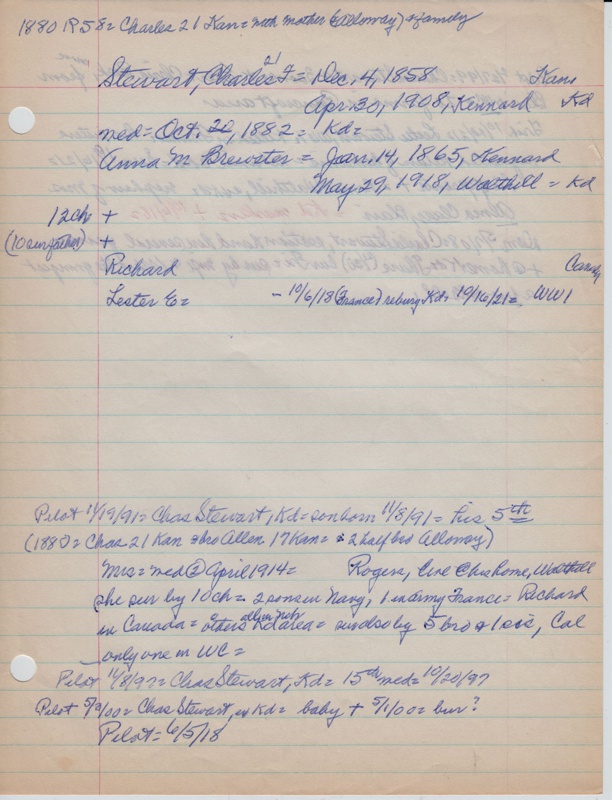 1880 P58= Charles 21 Kan= with mother (Alloway) & family
Stewart, Charles F = Dec. 4, 1858 Kans
21
Apr. 30, 1908, Kennard Kd
med= Oct. 20, 1882= Kd=
Anna M Brewster = Jan. 14, 1865, Kennard
May 29, 1918, Walthill = Kd
12ch +
(10 sur father) +
Richard Canada
Lester E= - 10/6/18 (France) rebury Kd= 10/16/21= WW1
Pilot 11/19/91= Chas Stewart, Kd= son born 11/8/91= his 5th
(1880= Chas 21 Kan & bro Allen 17 Kan= & 2 half bro Alloway)
Mrs= med @ April 1914= Rogers, live Chas home, Walthill
she sur by 10 ch= 2 sons in Navy, 1 in Army France= Richard
in Canada= others Kd area= surdso by 5 bro & 1 sis, Cal
all in Neb
only one in WC=
Pilot 11/8/97= Chas Stewart, Kd= 15th med= 10/20/97
Pilot 5/9/00= Chas Stewart, Kd= baby + 5/1/00= bur?
Pilot= 6/5/18